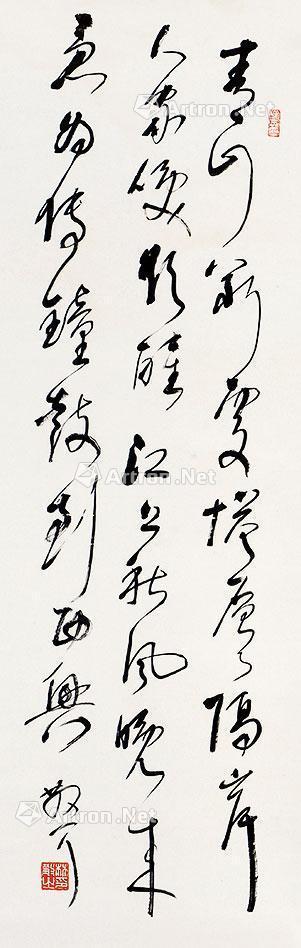 青山斷處塔層々隔岸
人家喚欲譍江上秋風晚來
急為傳鐘鼓到西興
散耳
Artron.Net